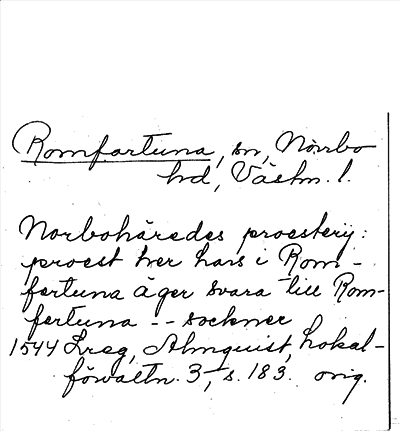 Romfartuna, sn, Norrbo
hd, Västm. l.
Norbohäredes proestery:
proest her hans i Rom-
fertuna äger svara till Rom-
fertuna -- sockner
1544 Lreg, Almquist, Lokal-
förvaltn. 3, s. 183. orig.